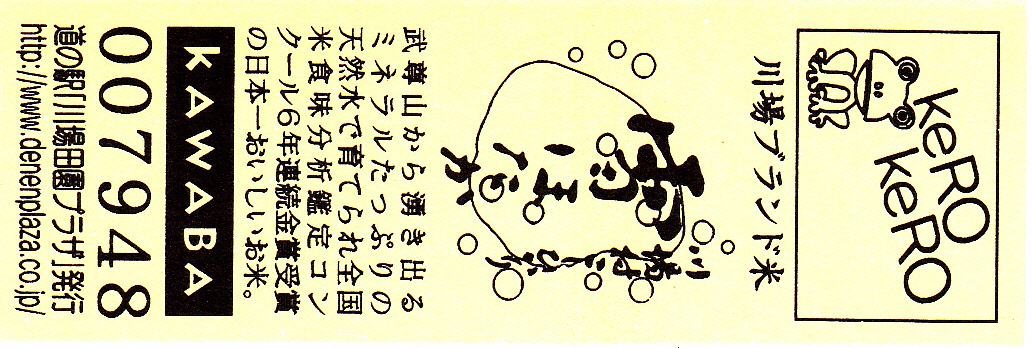 keRO
keRO
川場ブランド米
雪ほたか
川場村
こしひかり
武尊山から湧き出る
ミネラルたっぷりの
天然水で育てられ全国
米食味分析鑑定コン
クール6年連続金賞受賞
の日本一おいしいお米。
KAWABA
007948
道の駅「川場田園プラザ」発行
http://www.denenplaza.co.jp/